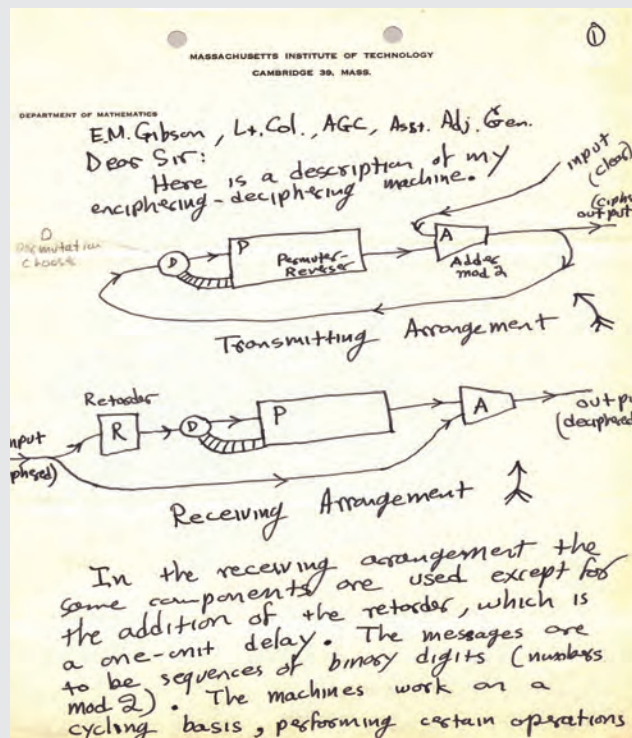 ①
MASSACHUSETTS INSTITUTE OF TECHNOLOGY
CAMBRIDGE 39, MASS.
DEPARTMENT OF MATHEMATICS
E.M. Gibson, Lt. Col., AGC, Asst. Adj. Gen.
Dear Sir:
Here is a description of my
enciphering-deciphering machine.
input
(clear)
(ciphe
output
D
Permutation
chooser
D
P
Permuter-
Reverser
A
Adder
mod 2
Transmitting Arrangement
Retarder
R
D
P
A
nput
phered)
outpu
(deciphered
Receiving Arrangement
In the receiving arrangement the
same components are used except for
the addition of the retarder, which is
a one-unit delay. The messages are
to be sequences of binary digits (numbers
mod 2). The machines work on a
cycling basis, performing certain operations